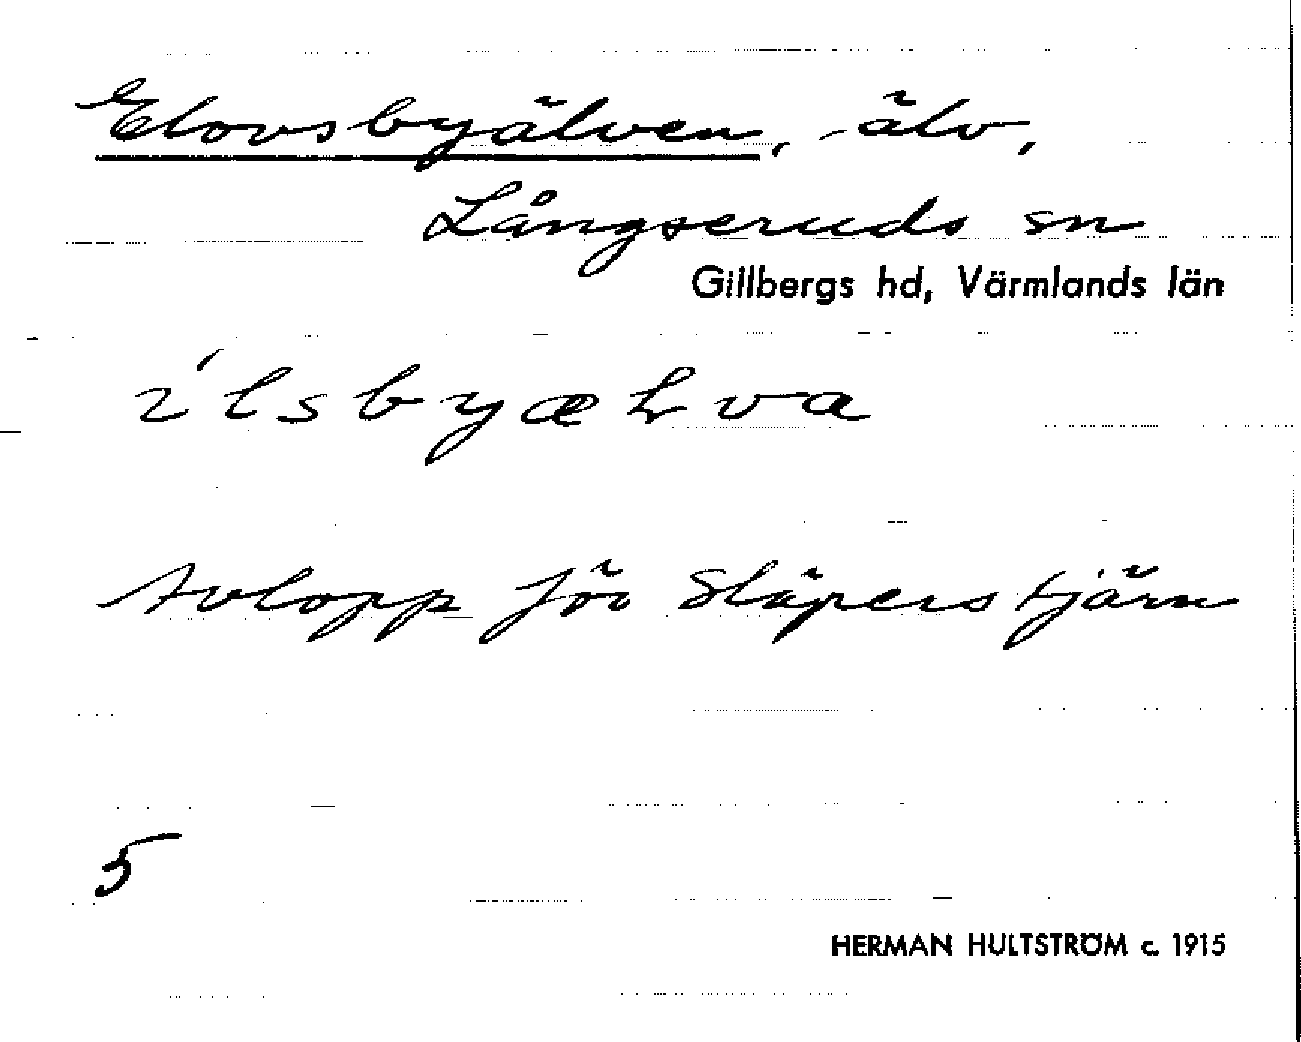 Elovsbyälven, älv,
Långseruds sn
Gillbergs hd, Värmlands län
ílsbyæLva
Avlopp för Släperstjärn
5
HERMAN HULTSTRÖM c. 1915